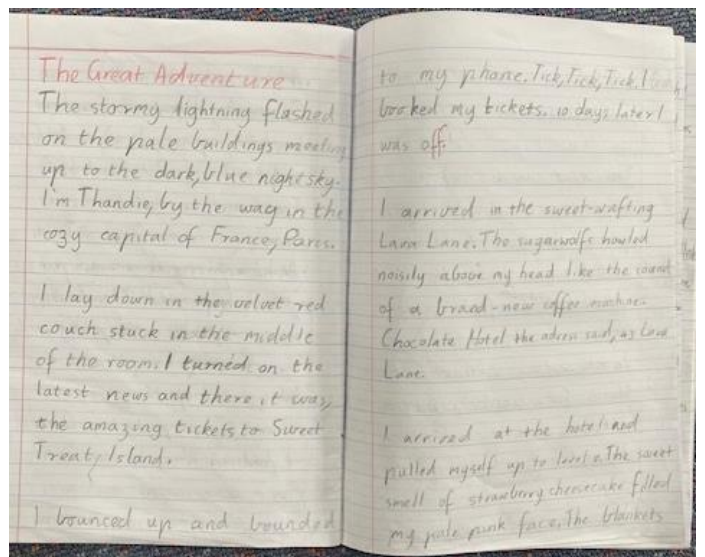 The Great Adventure
The stormy lightning flashed
on the pale buildings meeting
up to the dark, blue night sky.
I'm Thandie, by the way in the
cozy capital of France, Paris.
I lay down in the velvet red
couch stuck in the middle
of the room. I turned on the
latest news and there it was,
the amazing tickets to Sweet
Treat Island.
I bounced up and bounded
to my phone. Tick, Tick, Tick. I
booked my tickets. 10 days later I
was off.
I arrived in the sweet-wafting
Lava Lane. The sugarwolfs howled
noisily above my head like the sound
of a brand-new coffee machine.
Chocolate Hotel the adress said, 45 Lava
Lane.
I arrived at the hotel and
pulled myself up to level 2. The sweet
smell of strawberry cheesecake filled
my pale pink face. The blankets